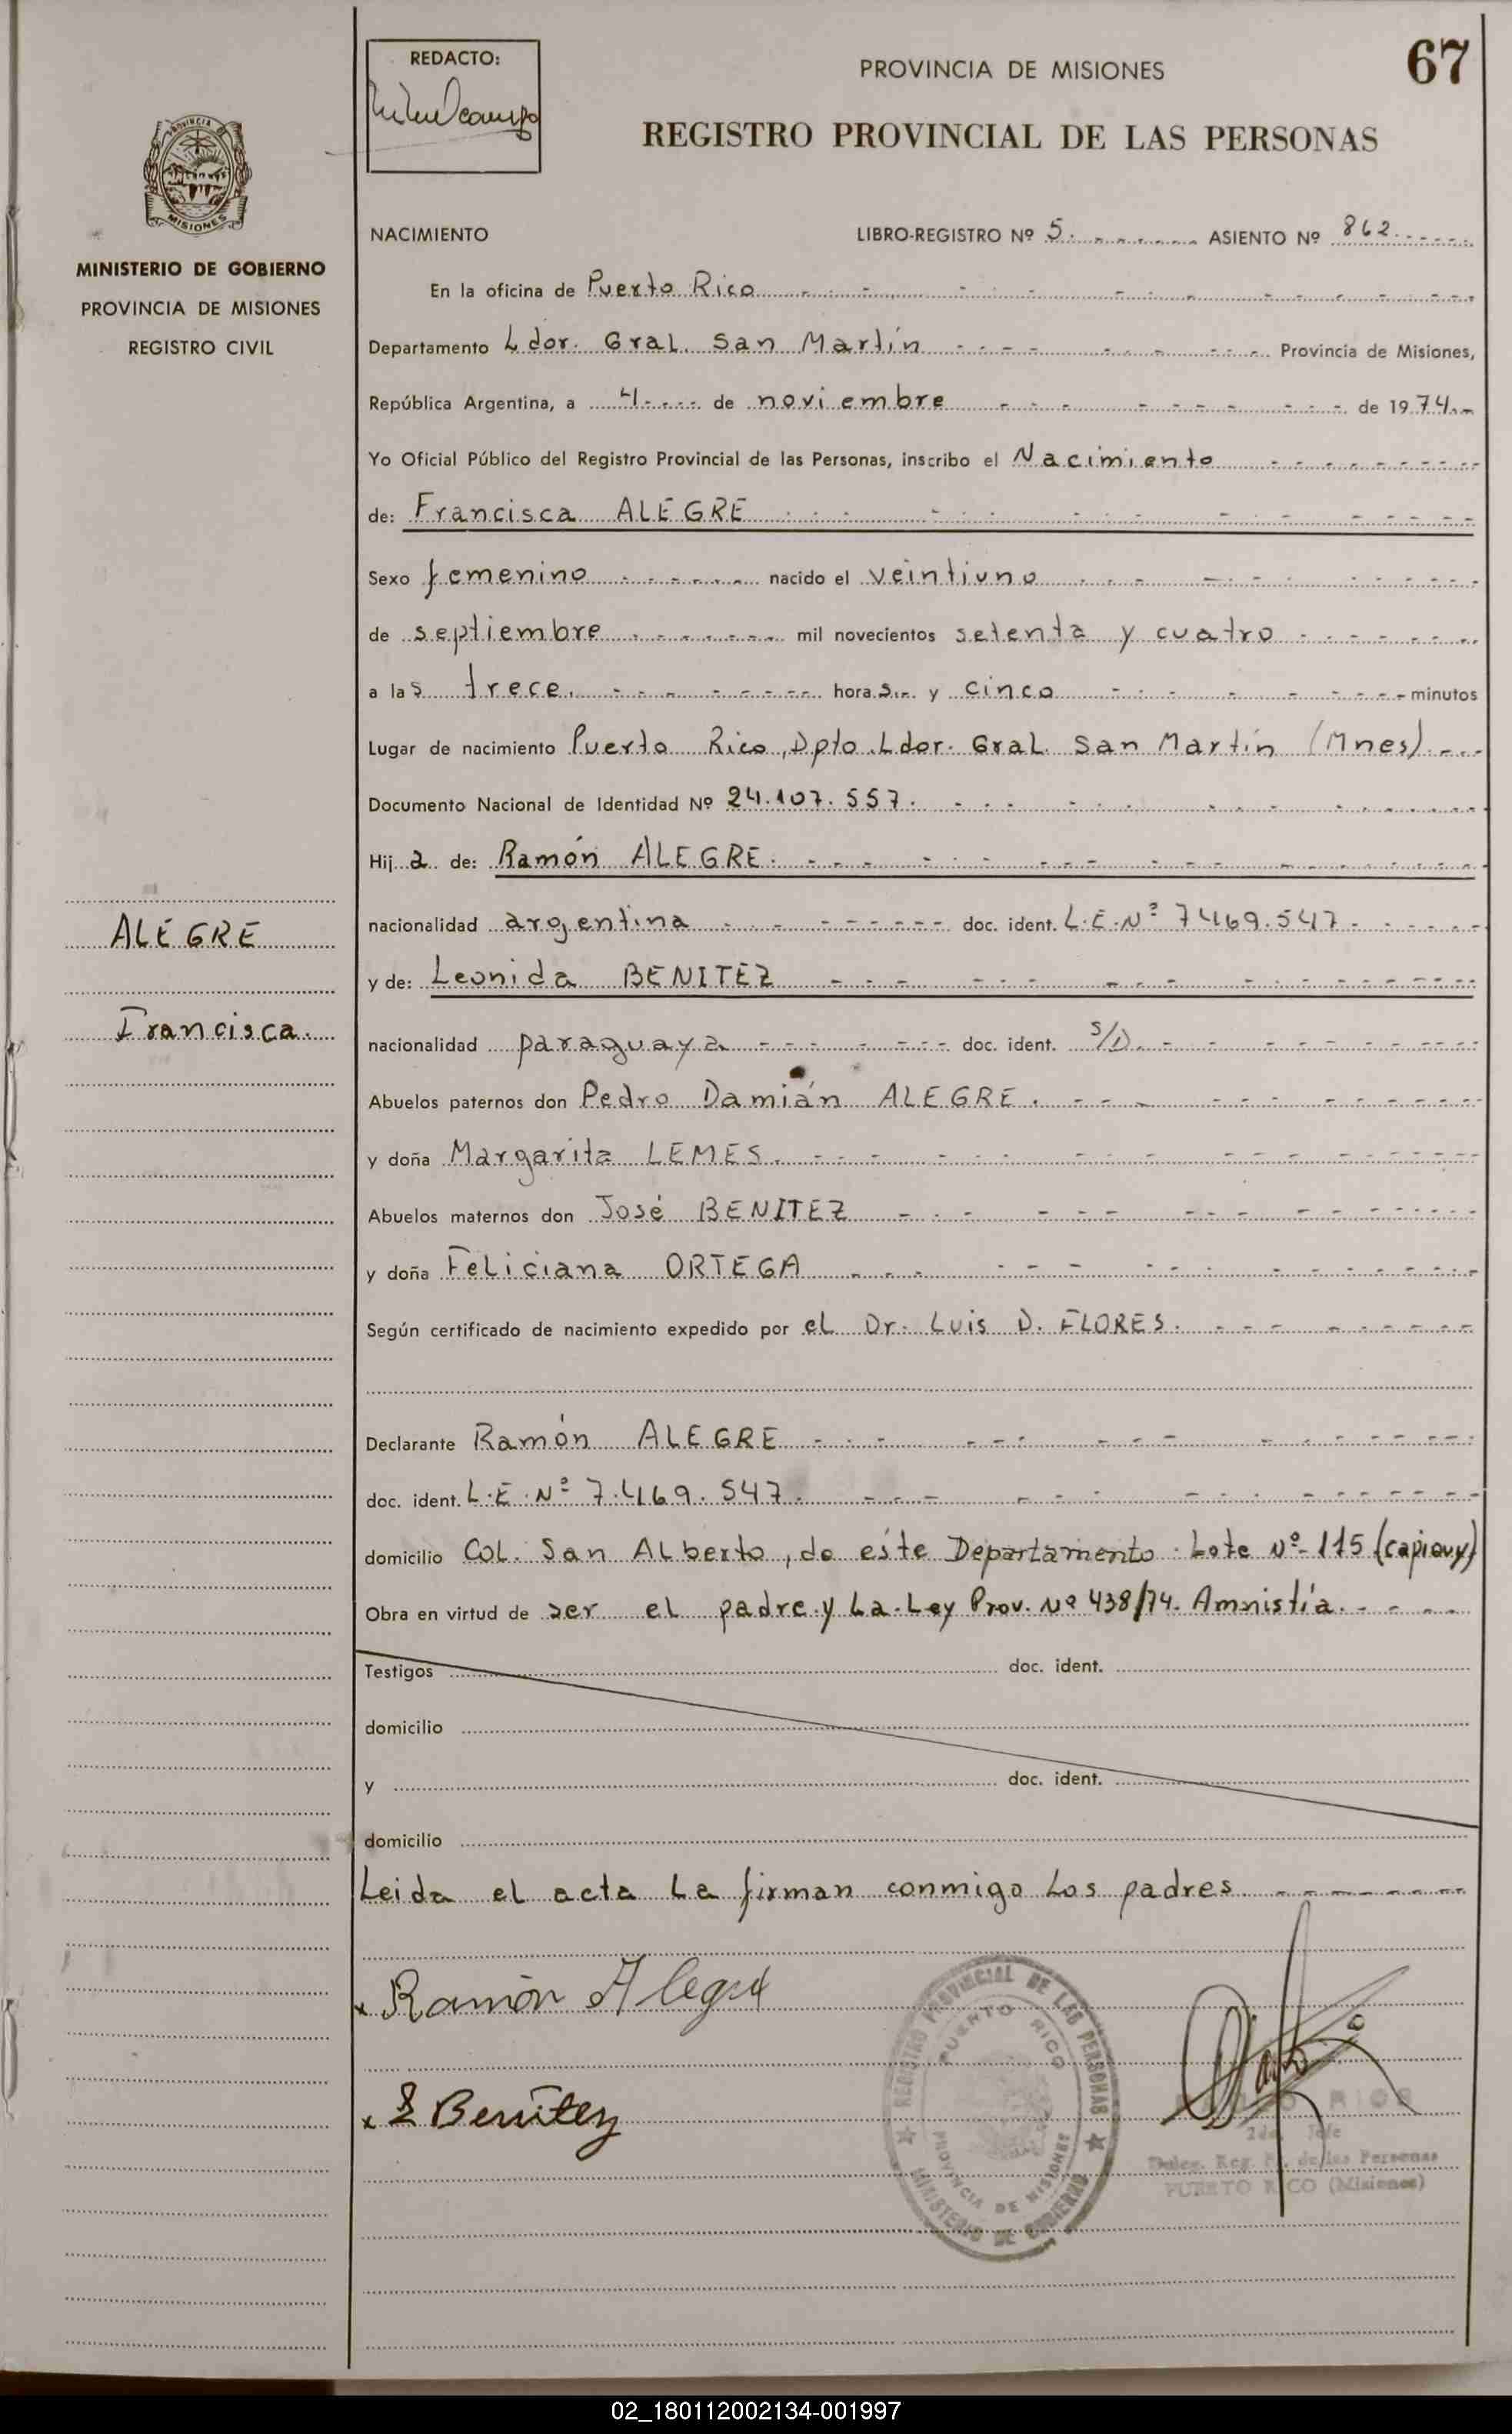 67
REDACTO:
PROVINCIA DE MISIONES
REGISTRO PROVINCIAL DE LAS PERSONAS
PROVINCIA DE MISIONES
MINISTERIO DE GOBIERNO
PROVINCIA DE MISIONES
REGISTRO CIVIL
NACIMIENTO LIBRO-REGISTRO Nº 5. ASIENTO Nº 862
En la oficina de Puerto Rico
Departamento Ldor. Gral. San Martín Provincia de Misiones,
República Argentina, a 4 de noviembre de 1974
Yo Oficial Público del Registro Provincial de las Personas, inscribo el Nacimiento
de: Francisca ALEGRE
Sexo femenino nacido el veintiuno
de septiembre mil novecientos setenta y cuatro
a las trece. horas y cinco minutos
Lugar de nacimiento Puerto Rico, Dpto. Ldor. Gral. San Martín (Mnes)
Documento Nacional de Identidad Nº 24.107.557.
Hija de: Ramón ALEGRE.
ALEGRE
Francisca.
nacionalidad argentina doc. ident. L.E.Nº 7469.547
y de: Leonida BENITEZ
nacionalidad paraguaya doc. ident. S/D.
Abuelos paternos don Pedro Damián ALEGRE.
y doña Margarita LEMES.
Abuelos maternos don José BENITEZ
y doña Feliciana ORTEGA
Según certificado de nacimiento expedido por el Dr. Luis D. FLORES.
Declarante Ramón ALEGRE
doc. ident. L.E.Nº 7.469.547.
domicilio Col. San Alberto, de éste Departamento. Lote Nº 115 (capiovy)
Obra en virtud de ser el padre y La Ley Prov. Nº 438/74. Amnistía.
Testigos doc. ident.
domicilio
y doc. ident.
domicilio
Leida el acta La firman conmigo Los padres
x Ramón Alegre
x L Benitez
REGISTRO PROVINCIAL DE LAS PERSONAS
PUERTO RICO
PROVINCIA DE MISIONES
MINISTERIO DE GOBIERNO
Jefe
Deleg. Reg. P. de las Personas
PUERTO RICO (Misiones)
02_180112002134-001997